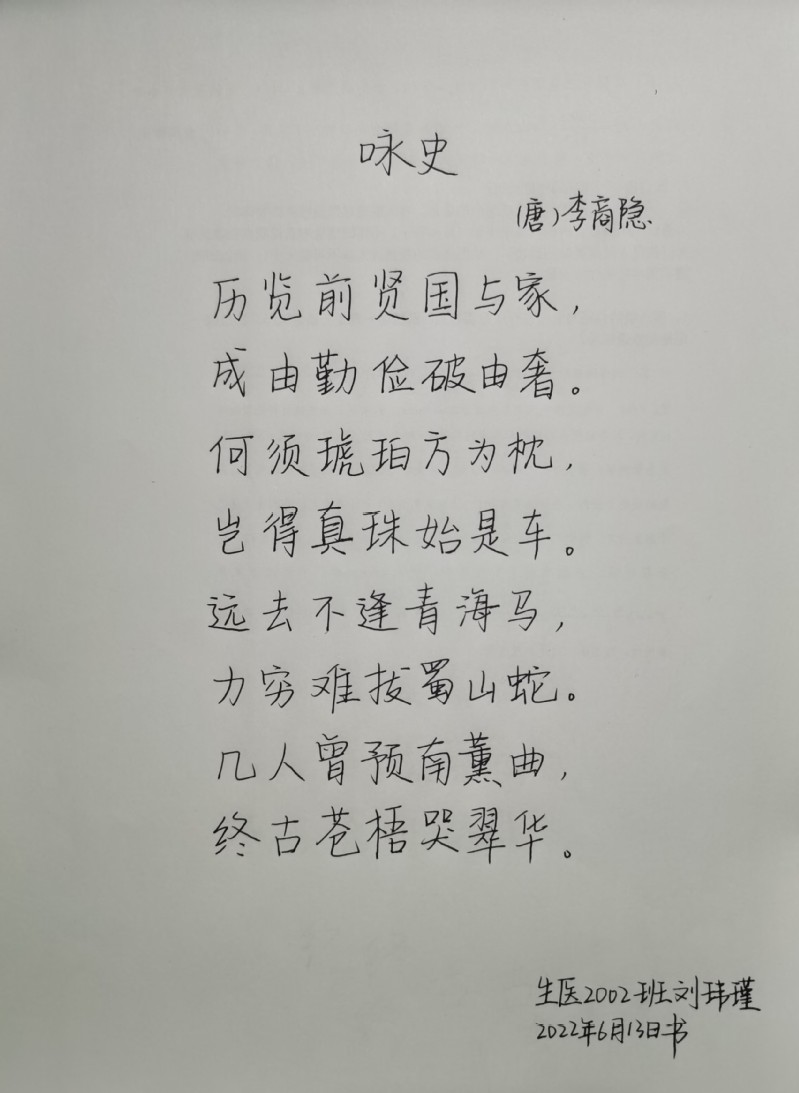 咏史
(唐)李商隐
历览前贤国与家,
成由勤俭破由奢。
何须琥珀方为枕,
岂得真珠始是车。
远去不逢青海马,
力穷难拔蜀山蛇。
几人曾预南薰曲,
终古苍梧哭翠华。
生医2002班刘玮瑾
2022年6月13日书